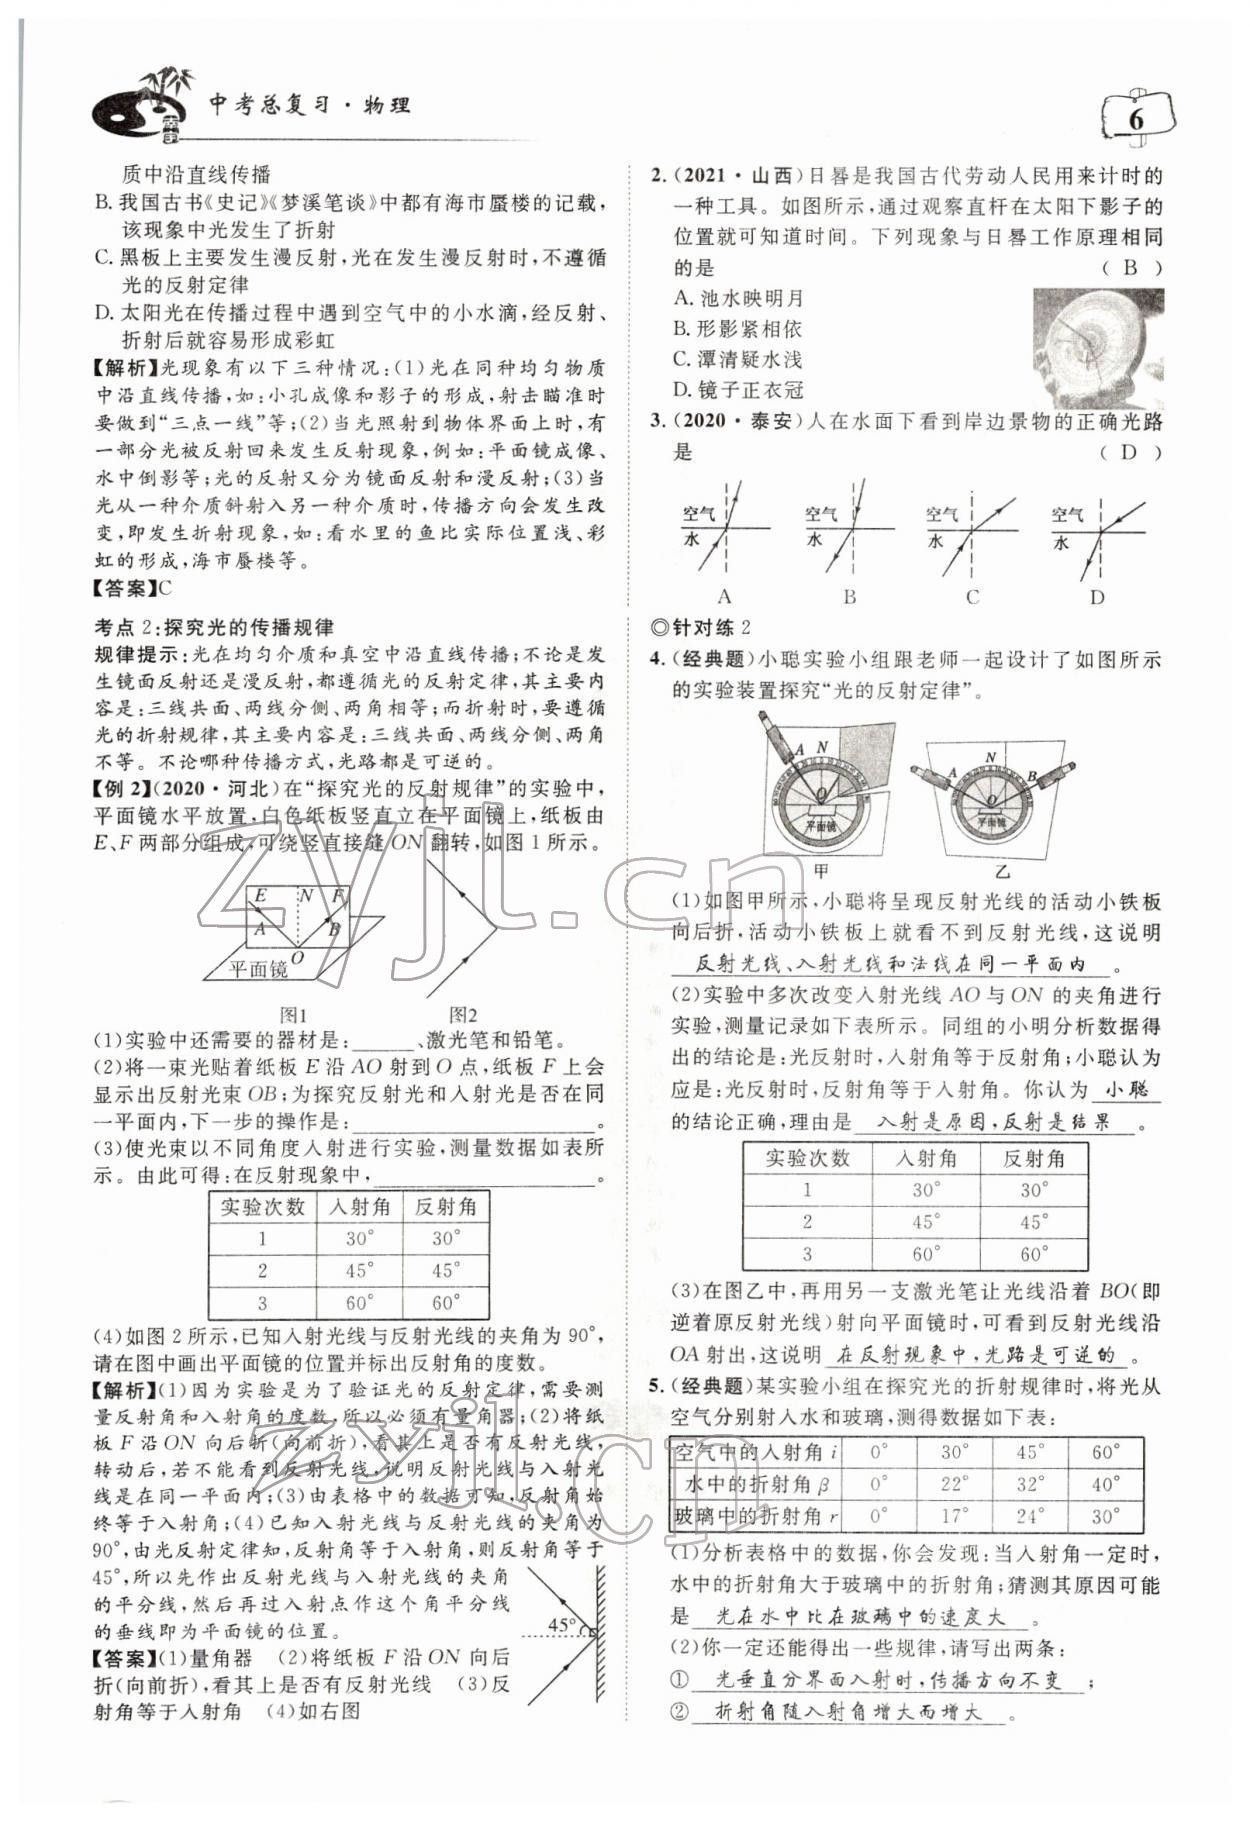 中考总复习·物理
6
质中沿直线传播
B.我国古书《史记》《梦溪笔谈》中都有海市蜃楼的记载,
该现象中光发生了折射
C.黑板上主要发生漫反射,光在发生漫反射时,不遵循
光的反射定律
D.太阳光在传播过程中遇到空气中的小水滴,经反射、
折射后就容易形成彩虹
【解析】光现象有以下三种情况:(1)光在同种均匀物质
中沿直线传播,如:小孔成像和影子的形成,射击瞄准时
要做到“三点一线”等;(2)当光照射到物体界面上时,有
一部分光被反射回来发生反射现象,例如:平面镜成像、
水中倒影等;光的反射又分为镜面反射和漫反射;(3)当
光从一种介质斜射入另一种介质时,传播方向会发生改
变,即发生折射现象,如:看水里的鱼比实际位置浅、彩
虹的形成,海市蜃楼等。
【答案】C
考点2:探究光的传播规律
规律提示:光在均匀介质和真空中沿直线传播;不论是发
生镜面反射还是漫反射,都遵循光的反射定律,其主要内
容是:三线共面、两线分侧、两角相等;而折射时,要遵循
光的折射规律,其主要内容是:三线共面、两线分侧、两角
不等。不论哪种传播方式,光路都是可逆的。
【例2】(2020·河北)在“探究光的反射规律”的实验中,
平面镜水平放置,白色纸板竖直立在平面镜上,纸板由
E、F两部分组成,可绕竖直接缝ON翻转,如图1所示。
E N F
A B
O
平面镜
图1 图2
(1)实验中还需要的器材是:______、激光笔和铅笔。
(2)将一束光贴着纸板E沿AO射到O点,纸板F上会
显示出反射光束OB;为探究反射光和入射光是否在同
一平面内,下一步的操作是:______。
(3)使光束以不同角度入射进行实验,测量数据如表所
示。由此可得:在反射现象中,______。
实验次数 入射角 反射角
1 30° 30°
2 45° 45°
3 60° 60°
(4)如图2所示,已知入射光线与反射光线的夹角为90°,
请在图中画出平面镜的位置并标出反射角的度数。
【解析】(1)因为实验是为了验证光的反射定律,需要测
量反射角和入射角的度数,所以必须有量角器;(2)将纸
板F沿ON向后折(向前折),看其上是否有反射光线,
转动后,若不能看到反射光线,说明反射光线与入射光
线是在同一平面内;(3)由表格中的数据可知,反射角始
终等于入射角;(4)已知入射光线与反射光线的夹角为
90°,由光反射定律知,反射角等于入射角,则反射角等于
45°,所以先作出反射光线与入射光线的夹角
的平分线,然后再过入射点作这个角平分线
的垂线即为平面镜的位置。
45°
【答案】(1)量角器 (2)将纸板F沿ON向后
折(向前折),看其上是否有反射光线 (3)反
射角等于入射角 (4)如右图
2.(2021·山西)日晷是我国古代劳动人民用来计时的
一种工具。如图所示,通过观察直杆在太阳下影子的
位置就可知道时间。下列现象与日晷工作原理相同
的是 ( B )
A.池水映明月
B.形影紧相依
C.潭清疑水浅
D.镜子正衣冠
3.(2020·泰安)人在水面下看到岸边景物的正确光路
是 ( D )
空气 空气 空气 空气
水 水 水 水
A B C D
◎针对练2
4.(经典题)小聪实验小组跟老师一起设计了如图所示
的实验装置探究“光的反射定律”。
A N O 平面镜
A N B O 平面镜
甲 乙
(1)如图甲所示,小聪将呈现反射光线的活动小铁板
向后折,活动小铁板上就看不到反射光线,这说明
反射光线、入射光线和法线在同一平面内。
(2)实验中多次改变入射光线AO与ON的夹角进行
实验,测量记录如下表所示。同组的小明分析数据得
出的结论是:光反射时,入射角等于反射角;小聪认为
应是:光反射时,反射角等于入射角。你认为 小聪
的结论正确,理由是 入射是原因,反射是结果 。
实验次数 入射角 反射角
1 30° 30°
2 45° 45°
3 60° 60°
(3)在图乙中,再用另一支激光笔让光线沿着BO(即
逆着原反射光线)射向平面镜时,可看到反射光线沿
OA射出,这说明 在反射现象中,光路是可逆的 。
5.(经典题)某实验小组在探究光的折射规律时,将光从
空气分别射入水和玻璃,测得数据如下表:
空气中的入射角i 0° 30° 45° 60°
水中的折射角β 0° 22° 32° 40°
玻璃中的折射角r 0° 17° 24° 30°
(1)分析表格中的数据,你会发现:当入射角一定时,
水中的折射角大于玻璃中的折射角;猜测其原因可能
是 光在水中比在玻璃中的速度大 。
(2)你一定还能得出一些规律,请写出两条:
① 光垂直分界面入射时,传播方向不变 ;
② 折射角随入射角增大而增大 。
zyjl.cn
zyjl.cn